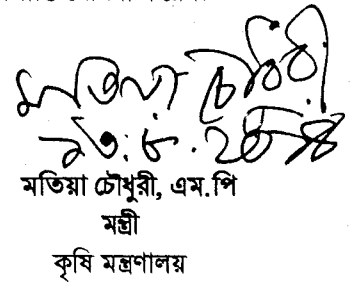 মতিয়া চৌধুরী
মতিয়া চৌধুরী, এম.পি
মন্ত্রী
কৃষি মন্ত্রণালয়